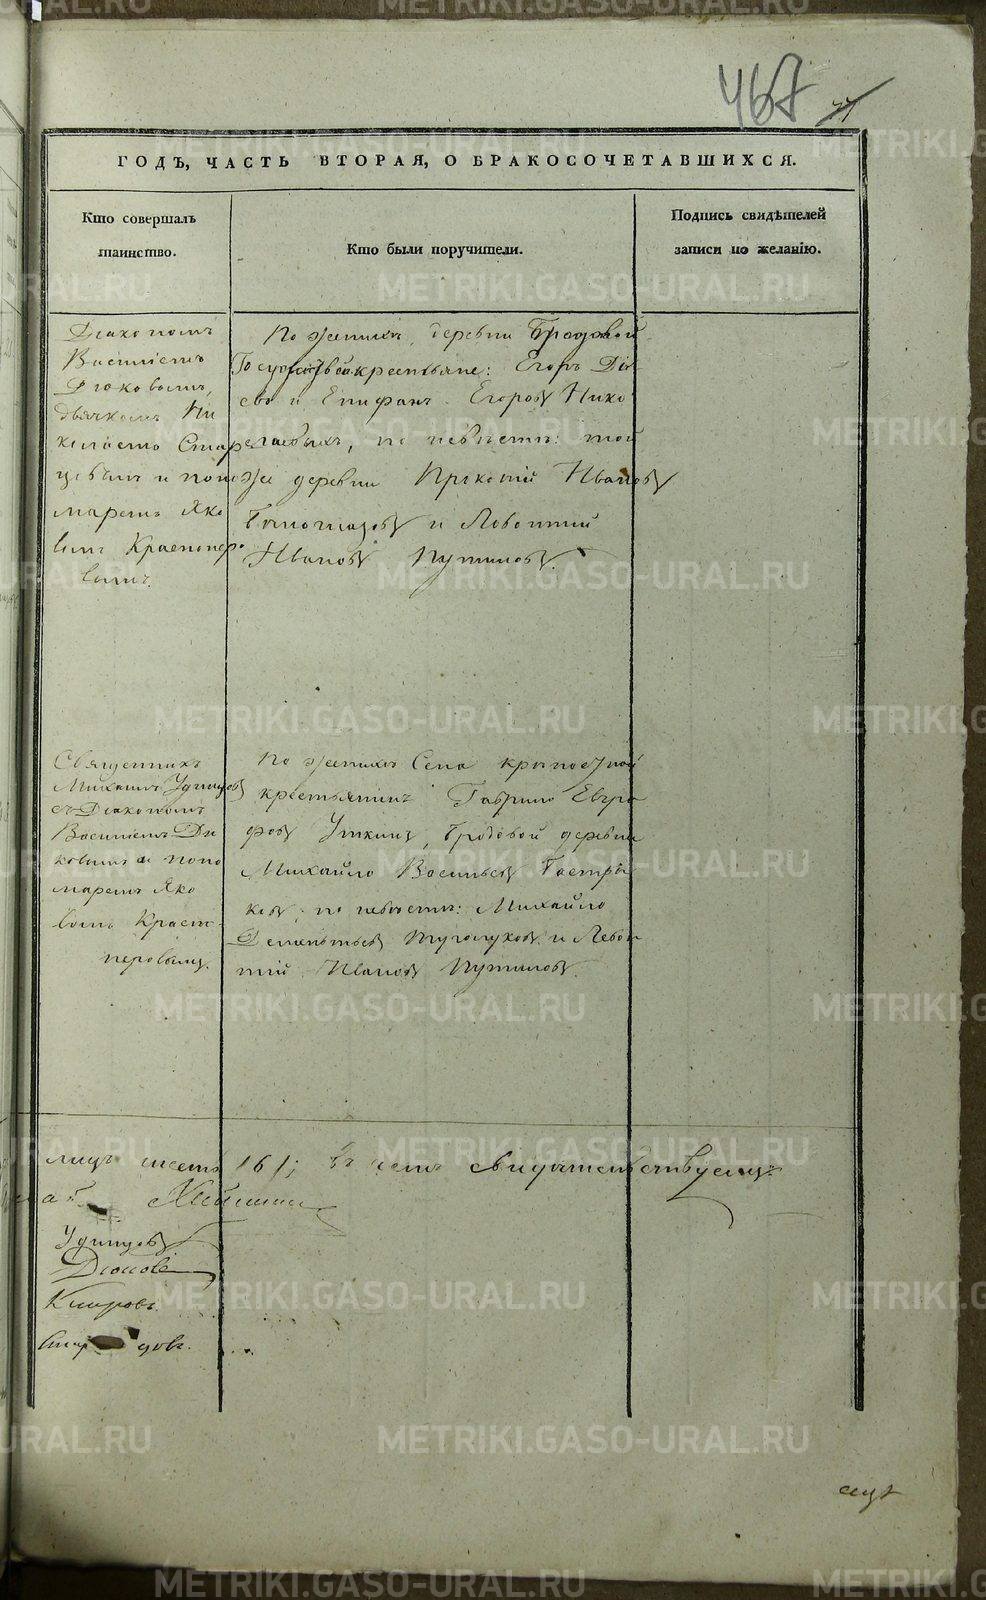 467
ГОДЪ, ЧАСТЬ ВТОРАЯ, О БРАКОСОЧЕТАВШИХСЯ.
Кто совершалъ
таинство.
Кто были поручители.
Подпись свидѣтелей
записи по желанію.
Діакономъ
Василіемъ
Дюковымъ,
дьячкомъ Ни
колаемъ Стар
цовымъ и поно
маремъ Яко
вомъ Краснопер
овымъ.
По женихѣ, деревни Бродовой
Государствен крестьяне: Егоръ
и Епифанъ Егоровъ Нико
лаевыхъ, по невѣстѣ: той
же деревни Прокопій Ивановъ
и Леонтий
Ивановъ Путиловъ.
Священникъ
Михаилъ Удинцовъ
съ Діакономъ
Василіемъ Дю
ковымъ и поно
маремъ Яко
вомъ Красно
перовымъ.
По женихѣ Села
крестьянинъ Гаврило Евгра
фовъ Уткинъ, Бродовой деревни
Михайло Васильевъ
по невѣстѣ: Михайло
Дементьевъ Туголуковъ и Левон
тій Ивановъ Путиловъ.
лицъ шесть 16/; въ чемъ свидѣтельствуемъ
Удинцовъ
Дюковъ
METRIKI.GASO-URAL.RU